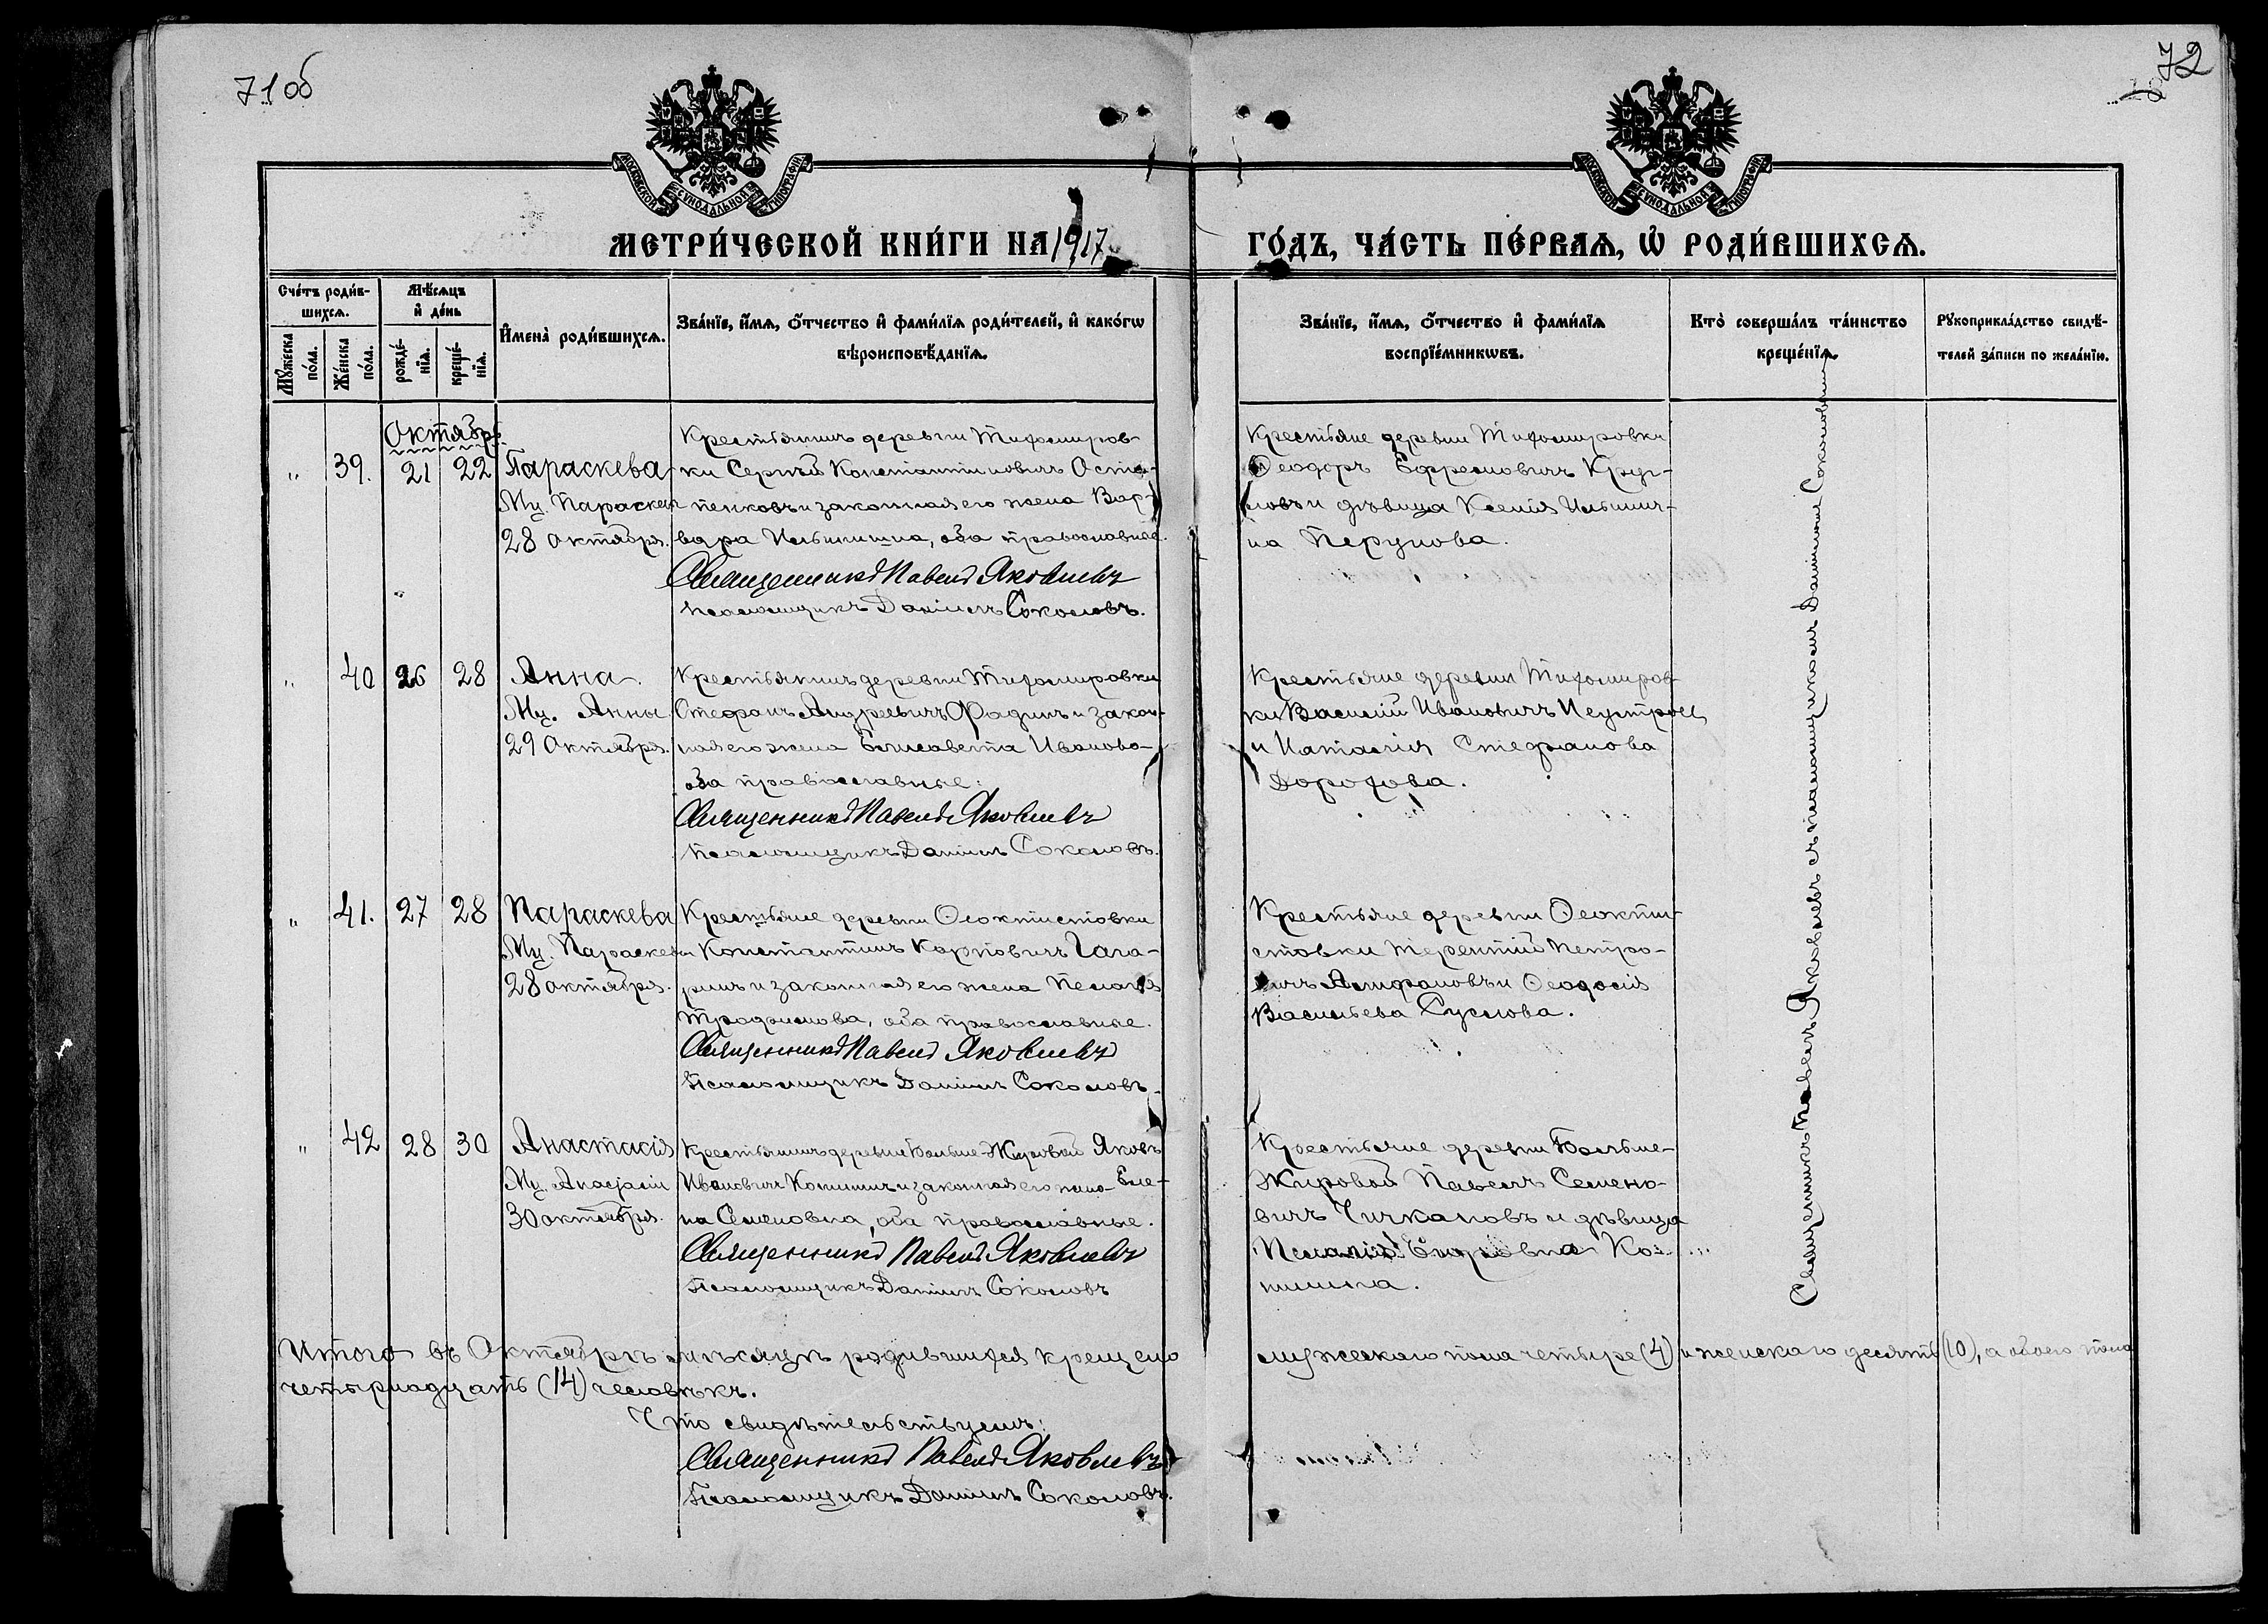 71 об
72
МОСКОВСКОЙ СѴНОДАЛЬНОЙ ТИПОГРАФІИ
МОСКОВСКОЙ СѴНОДАЛЬНОЙ ТИПОГРАФІИ
МЕТРИ́ЧЕСКОЙ КНИ́ГИ НА 1917
ГО́ДЪ, ЧА́СТЬ ПЕ́РВАѦ, Ѡ҆ РОДИ́ВШИХСѦ.
Сче́тъ роди́в-
шихсѧ.
Мѣ́сѧцъ
и҆ де́нь
Мꙋ́жеска
по́ла.
Же́нска
по́ла.
рожде́-
нїѧ.
креще́-
нїѧ.
И҆мена̀ роди́вшихсѧ.
Зва́нїе, и҆́мѧ, ѻ҆́тчество и҆ фами́лїѧ роди́телей, и҆ како́гѡ
вѣроисповѣ́данїѧ.
Зва́нїе, и҆́мѧ, ѻ҆́тчество и҆ фами́лїѧ
воспрїе́мникѡвъ.
Кто̀ соверша́лъ та́инство
креще́нїѧ.
Рꙋкоприкла́дство свидѣ́-
телей за́писи по жела́нїю.
Октябрь
" 39. 21 22 Параскева
Мц. Параскевы
28 октября.
Крестьянинъ деревни Тихомиров-
ки Сергѣй Константиновичъ Оста-
пенковъ и законная его жена Вар-
вара Ильинишна, оба православные.
Священникъ Павелъ Яковлевъ
Псаломщикъ Даніилъ Соколовъ.
Крестьяне деревни Тихомировки
Ѳеодоръ Ефремовичъ Круг-
ловъ и дѣвица Ксенія Ильинич-
на Перунова.
" 40 26 28 Анна.
Мц. Анны
29 Октября.
Крестьянинъ деревни Тихомировки
Стефанъ Андреевичъ Фадинъ и закон-
ная его жена Елисавета Иванова-
оба православные:
Священникъ Павелъ Яковлевъ
Псаломщикъ Даніилъ Соколовъ.
Крестьяне деревни Тихомиров-
ки Василій Ивановичъ Неустроев
и Наталія Стефанова
Дорохова.
" 41. 27 28 Параскева
Мц. Параскевы
28 октября.
Крестьяне деревни Ѳеоктистовки
Константинъ Карповичъ Гага-
ринъ и законная его жена Пелагія
Трофимова, оба православные.
Священникъ Павелъ Яковлевъ
Псаломщикъ Даніилъ Соколовъ.
Крестьяне деревни Ѳеокти-
стовки Терентій Петро-
вичъ Агафоновъ и Ѳеодосія
Васильева Суслова.
" 42 28 30 Анастасія
Мц. Анастасіи
30 октября.
Крестьянинъ деревни Больше-Жировой Яковъ
Ивановичъ Конинин и законная его жена Еле-
на Семеновна, оба православные.
Священникъ Павелъ Яковлевъ
Псаломщикъ Даніилъ Соколовъ
Крестьяне деревни Больше-
Жировой Павелъ Семено-
вичъ Чичкановъ и дѣвица
Пелагія Егоровна Ко-
нинина.
Священникъ Павелъ Яковлевъ съ псаломщикомъ Даніиломъ Соколовымъ
Итого въ Октябрѣ мѣсяцѣ родившихся крещено мужескаго пола четыре (4) и женскаго десять (10), а обоего пола
четырнадцать (14) человѣкъ.
Что свидѣтельствуемъ:
Священникъ Павелъ Яковлевъ
Псаломщикъ Даніилъ Соколовъ.